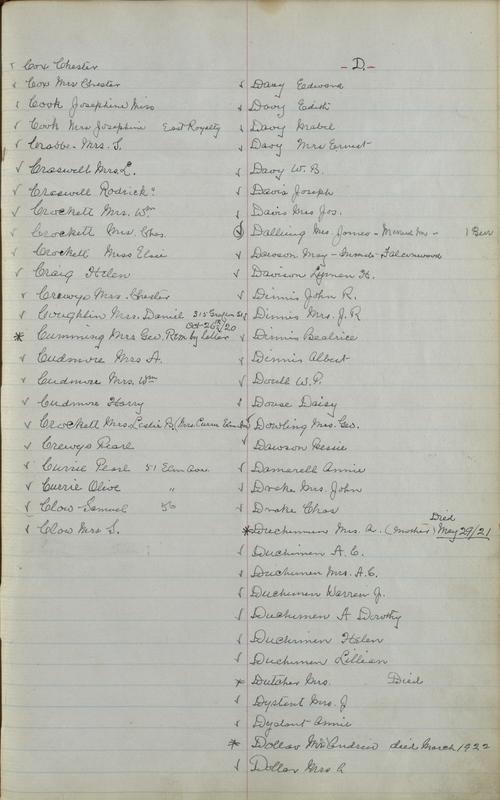 Cox Chester
Cox Mrs Chester
Cook Josephine Miss
Cook Mrs Josephine East Royalty
Crabbe Mrs. S.
Craswell Mrs L.
Craswell Rodrick
Crockett Mrs. Wm
Crockett Mrs. Chas.
Crockett Miss Elsie
Craig Helen
Crewys Mrs. Chester
Coughlin Mrs. Daniel 315
Cumming Mrs Geo. Rem by letter Oct-26th/20
Cudmore Mrs A.
Cudmore Mrs. Wm
Cudmore Harry
Crockett Mrs Leslie R. (Mrs. Currie Elm Ave
Crewys Pearl
Currie Pearl 51 Elm Ave.
Currie Olive "
Clow Samuel 56
Clow Mrs S.
- D. -
Davy Edward
Davy Edith
Davy Mabel
Davy Mrs Ernest
Davy W. B.
Davis Joseph
Davis Mrs Jos.
Dalling Mrs. James
Dawson May - Falconwood
Davison Lyman H.
Dinnis John R.
Dinnis Mrs. J. R
Dinnis Beatrice
Dinnis Albert
Doull W. P.
Douse Daisy
Dowling Mrs. Geo.
Dawson Bessie
Damarell Annie
Drake Mrs. John
Drake Chas
Duchemen Mrs. A. (Mother) Died May 29/21
Duchemen A. C.
Duchemen Mrs. A. C.
Duchemen Warren J.
Duchemen A Dorothy
Duchemen Helen
Duchemen Lillian
Dutcher Mrs. Died
Dystant Mrs. J
Dystant Annie
Dollar Mrs Andrew died March 1922
Dollar Mrs A